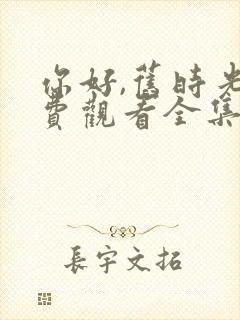 你好,舊時光
費觀看全集
長宇文拓